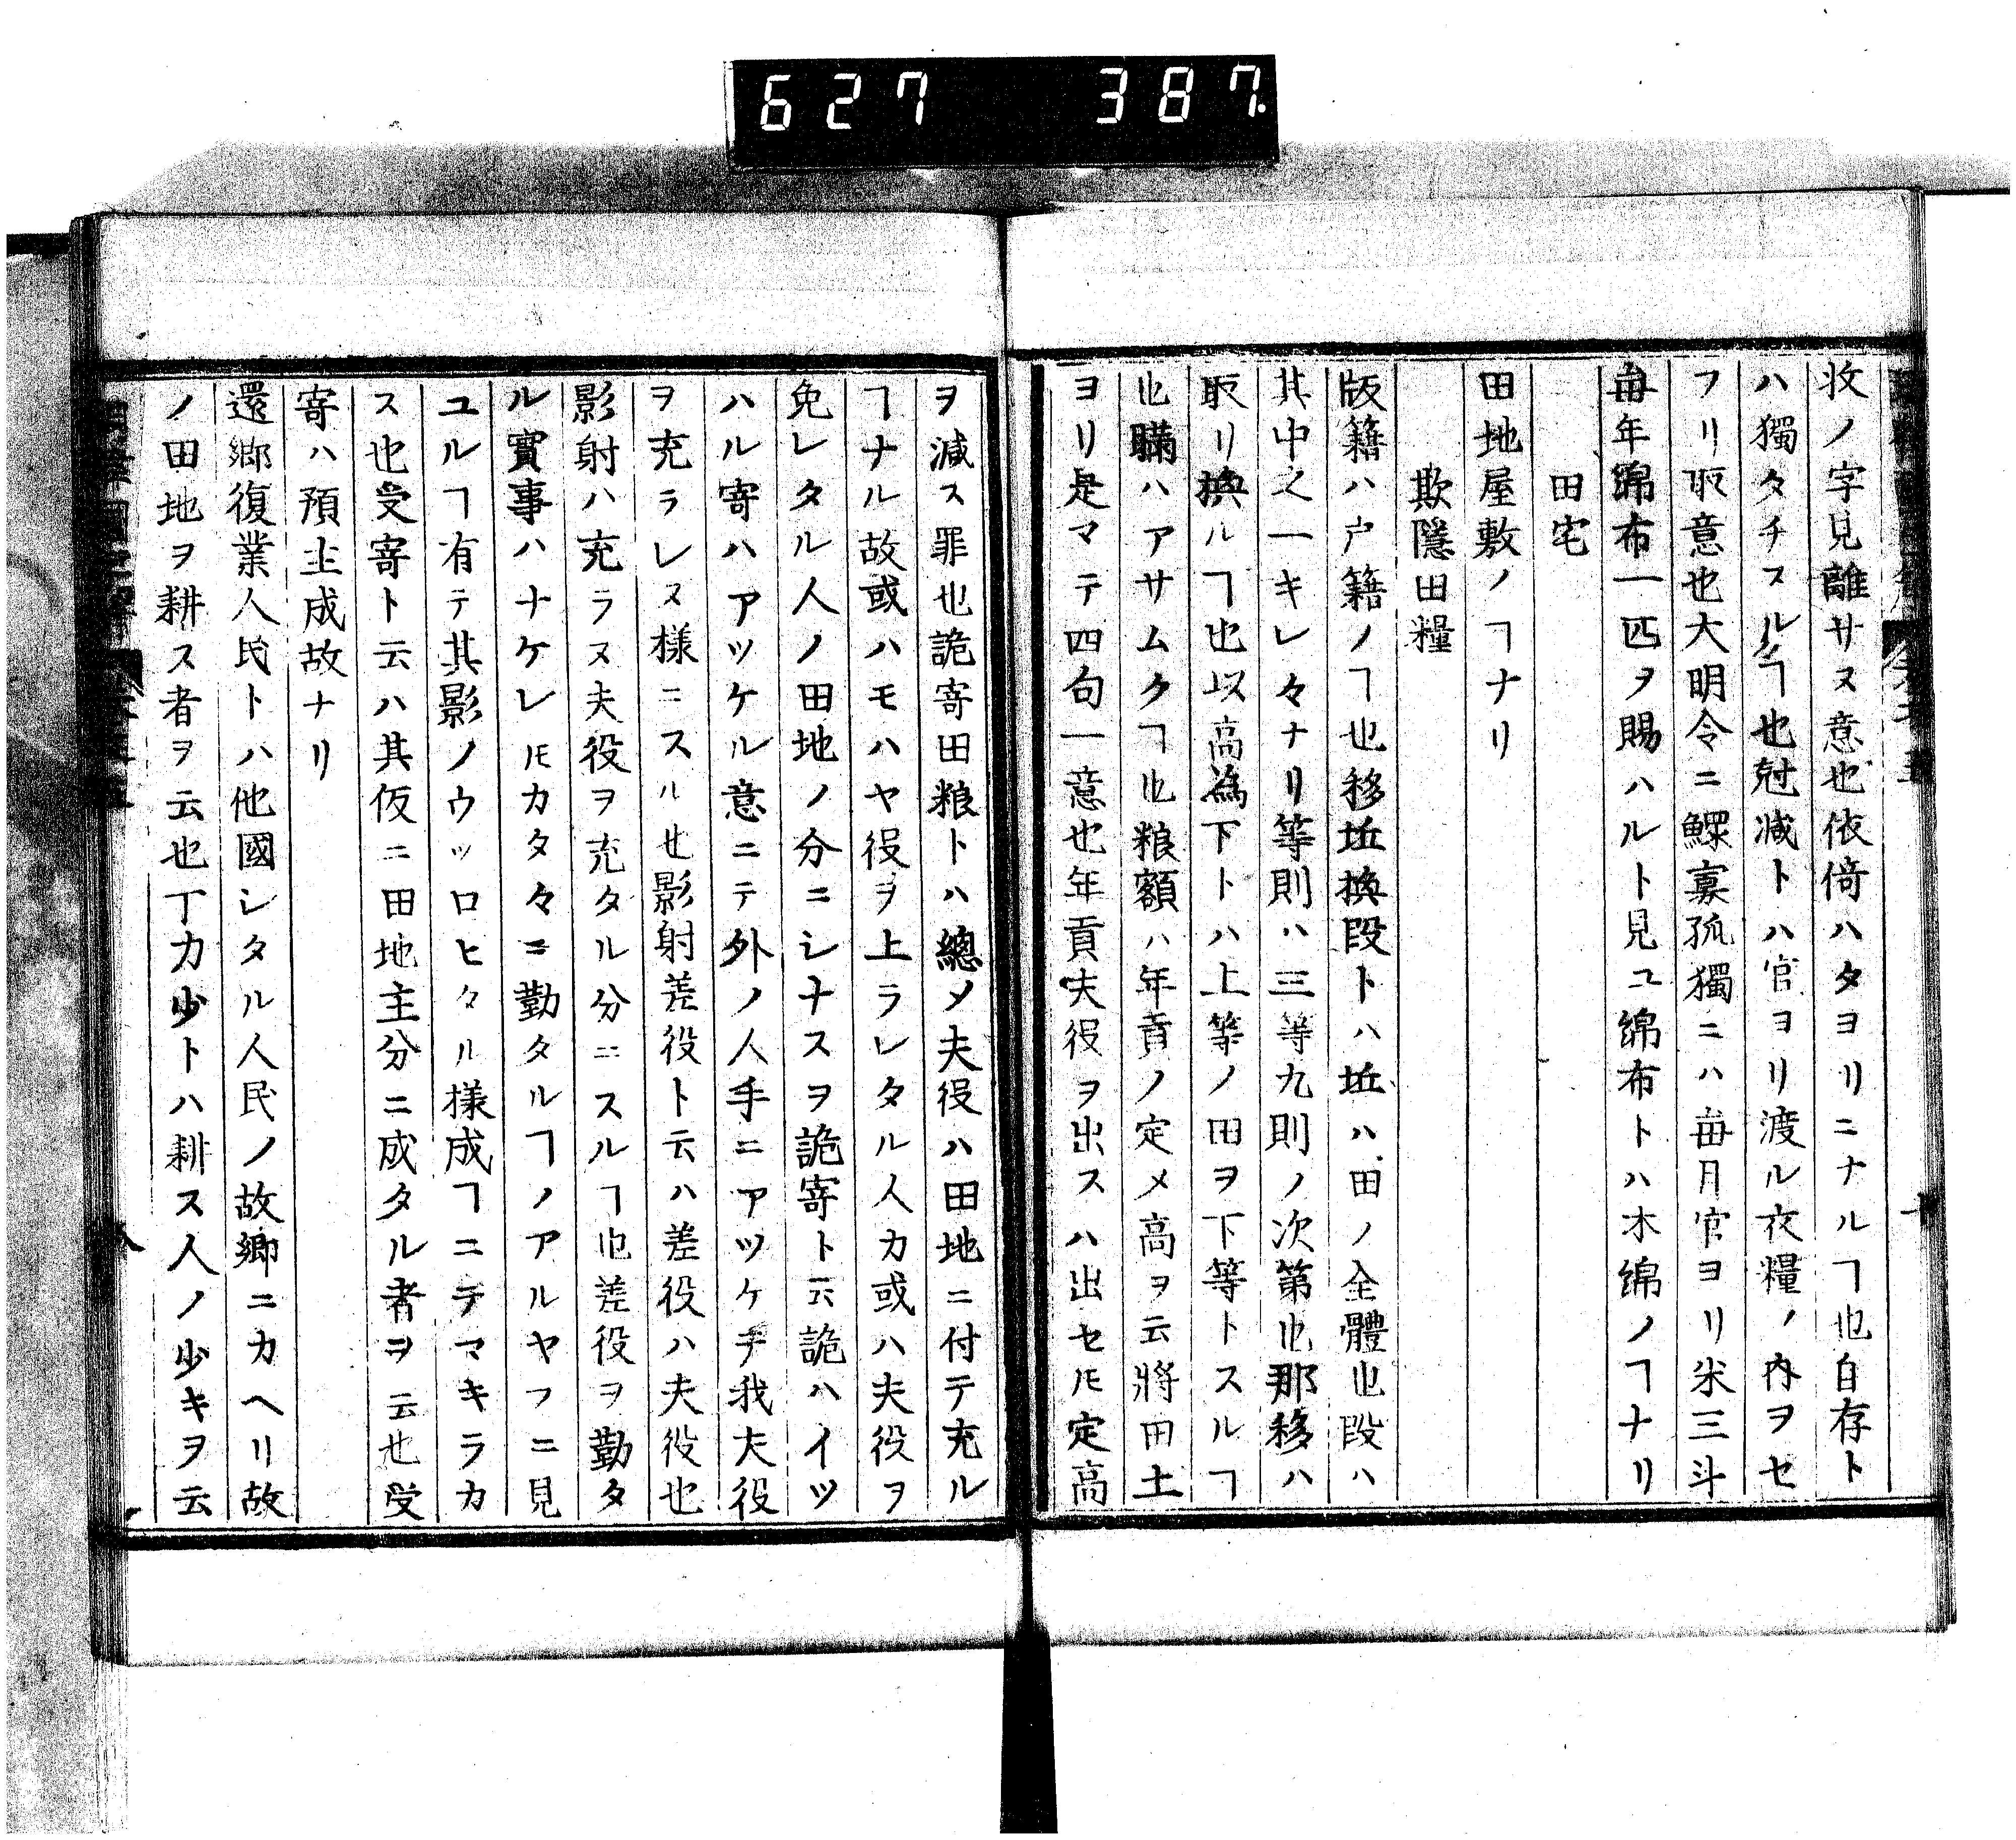 627 387
收ノ字見離サヌ意也依倚ハタヨリニナルヿ也自存ト
ハ獨タチスルヿ也尅減トハ官ヨリ渡ル衣糧ノ内ヲセ
フリ取意也大明令ニ鰥寡孤獨ニハ毎月官ヨリ米三斗
毎年綿布一匹ヲ賜ハルト見ユ綿布トハ木綿ノヿナリ
田宅
田地屋敷ノヿナリ
欺隱田糧
版籍ハ戸籍ノヿ也移坵換段トハ坵ハ田ノ全體也段ハ
其中之一キレ々ナリ等則ハ三等九則ノ次第也那移ハ
取リ換ルヿ也以高為下トハ上等ノ田ヲ下等トスルヿ
也瞞ハアサムクヿ也粮額ハ年貢ノ定メ高ヲ云將田土
ヨリ是マテ四句一意也年貢夫役ヲ出スハ出セ𪜈定高
ヲ減ス罪也詭寄田粮トハ總メ夫役ハ田地ニ付テ充ル
ヿナル故或ハモハヤ役ヲ上ラレタル人カ或ハ夫役ヲ
免レタル人ノ田地ノ分ニシナスヲ詭寄ト云詭ハイツ
ハル寄ハアツケル意ニテ外ノ人手ニアツケテ我夫役
ヲ充ラレヌ様ニスル也影射差役ト云ハ差役ハ夫役也
影射ハ充ラヌ夫役ヲ充タル分ニスルヿ也差役ヲ勤タ
ル實事ハナケレ𪜈カタ々ニ勤タルヿノアルヤフニ見
ユルヿ有テ其影ノウツロヒタル様成ヿニテマキラカ
ス也受寄ト云ハ其仮ニ田地主分ニ成タル者ヲ云也受
寄ハ預主成故ナリ
還郷復業人民トハ他國シタル人民ノ故郷ニカヘリ故
ノ田地ヲ耕ス者ヲ云也丁力少トハ耕ス人ノ少キヲ云